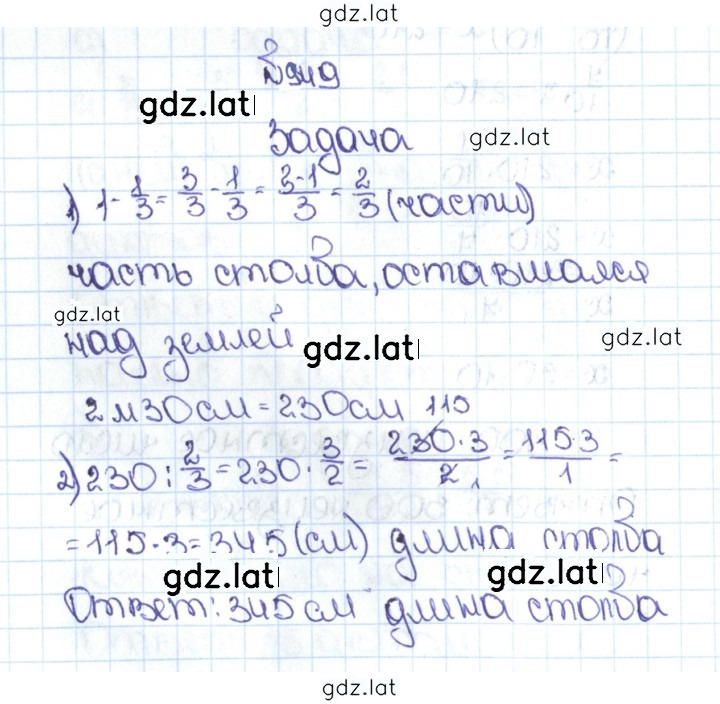 gdz.lat
№949
gdz.lat
Задача
gdz.lat
1) 1 - 1/3 = 3/3 - 1/3 = (3-1)/3 = 2/3 (части)
часть столба, оставшаяся
gdz.lat
над землей
gdz.lat
gdz.lat
2м30см = 230см
2) 230 : 2/3 = 230 · 3/2 = (230 115 · 3)/(2 1) = (115·3)/1 =
= 115·3 = 345 (см) длина столба
gdz.lat
gdz.lat
Ответ: 345 см длина столба
gdz.lat